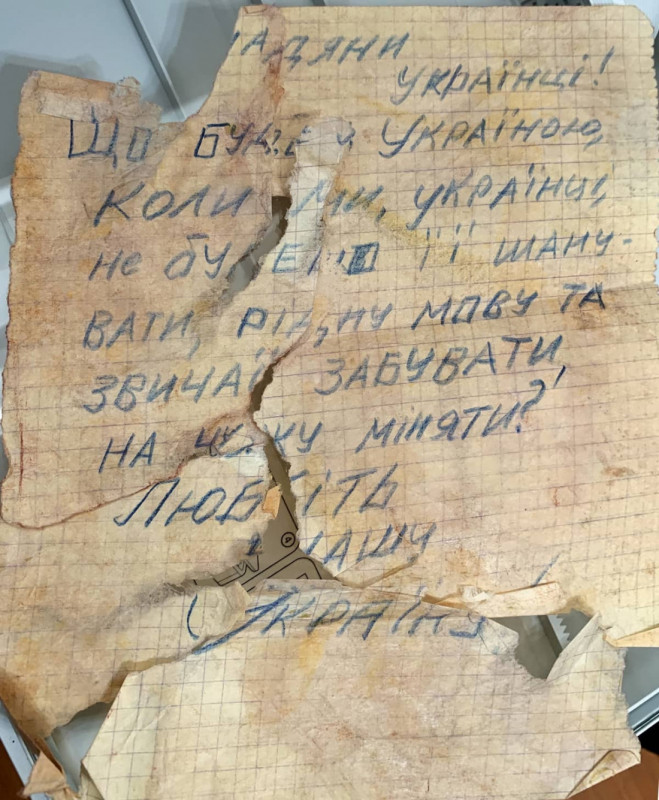 УКРАЇНЦІ!
ЩО БУДЕ З УКРАЇНОЮ,
КОЛИ МИ, УКРАЇНЦІ,
НЕ БУДЕМО ЇЇ ШАНУ-
ВАТИ, РІДНУ МОВУ ТА
ЗВИЧАЇ ЗАБУВАТИ,
НА ЧУЖУ МІНЯТИ?!
ЛЮБІТЬ
НАШУ
УКРАЇНУ!